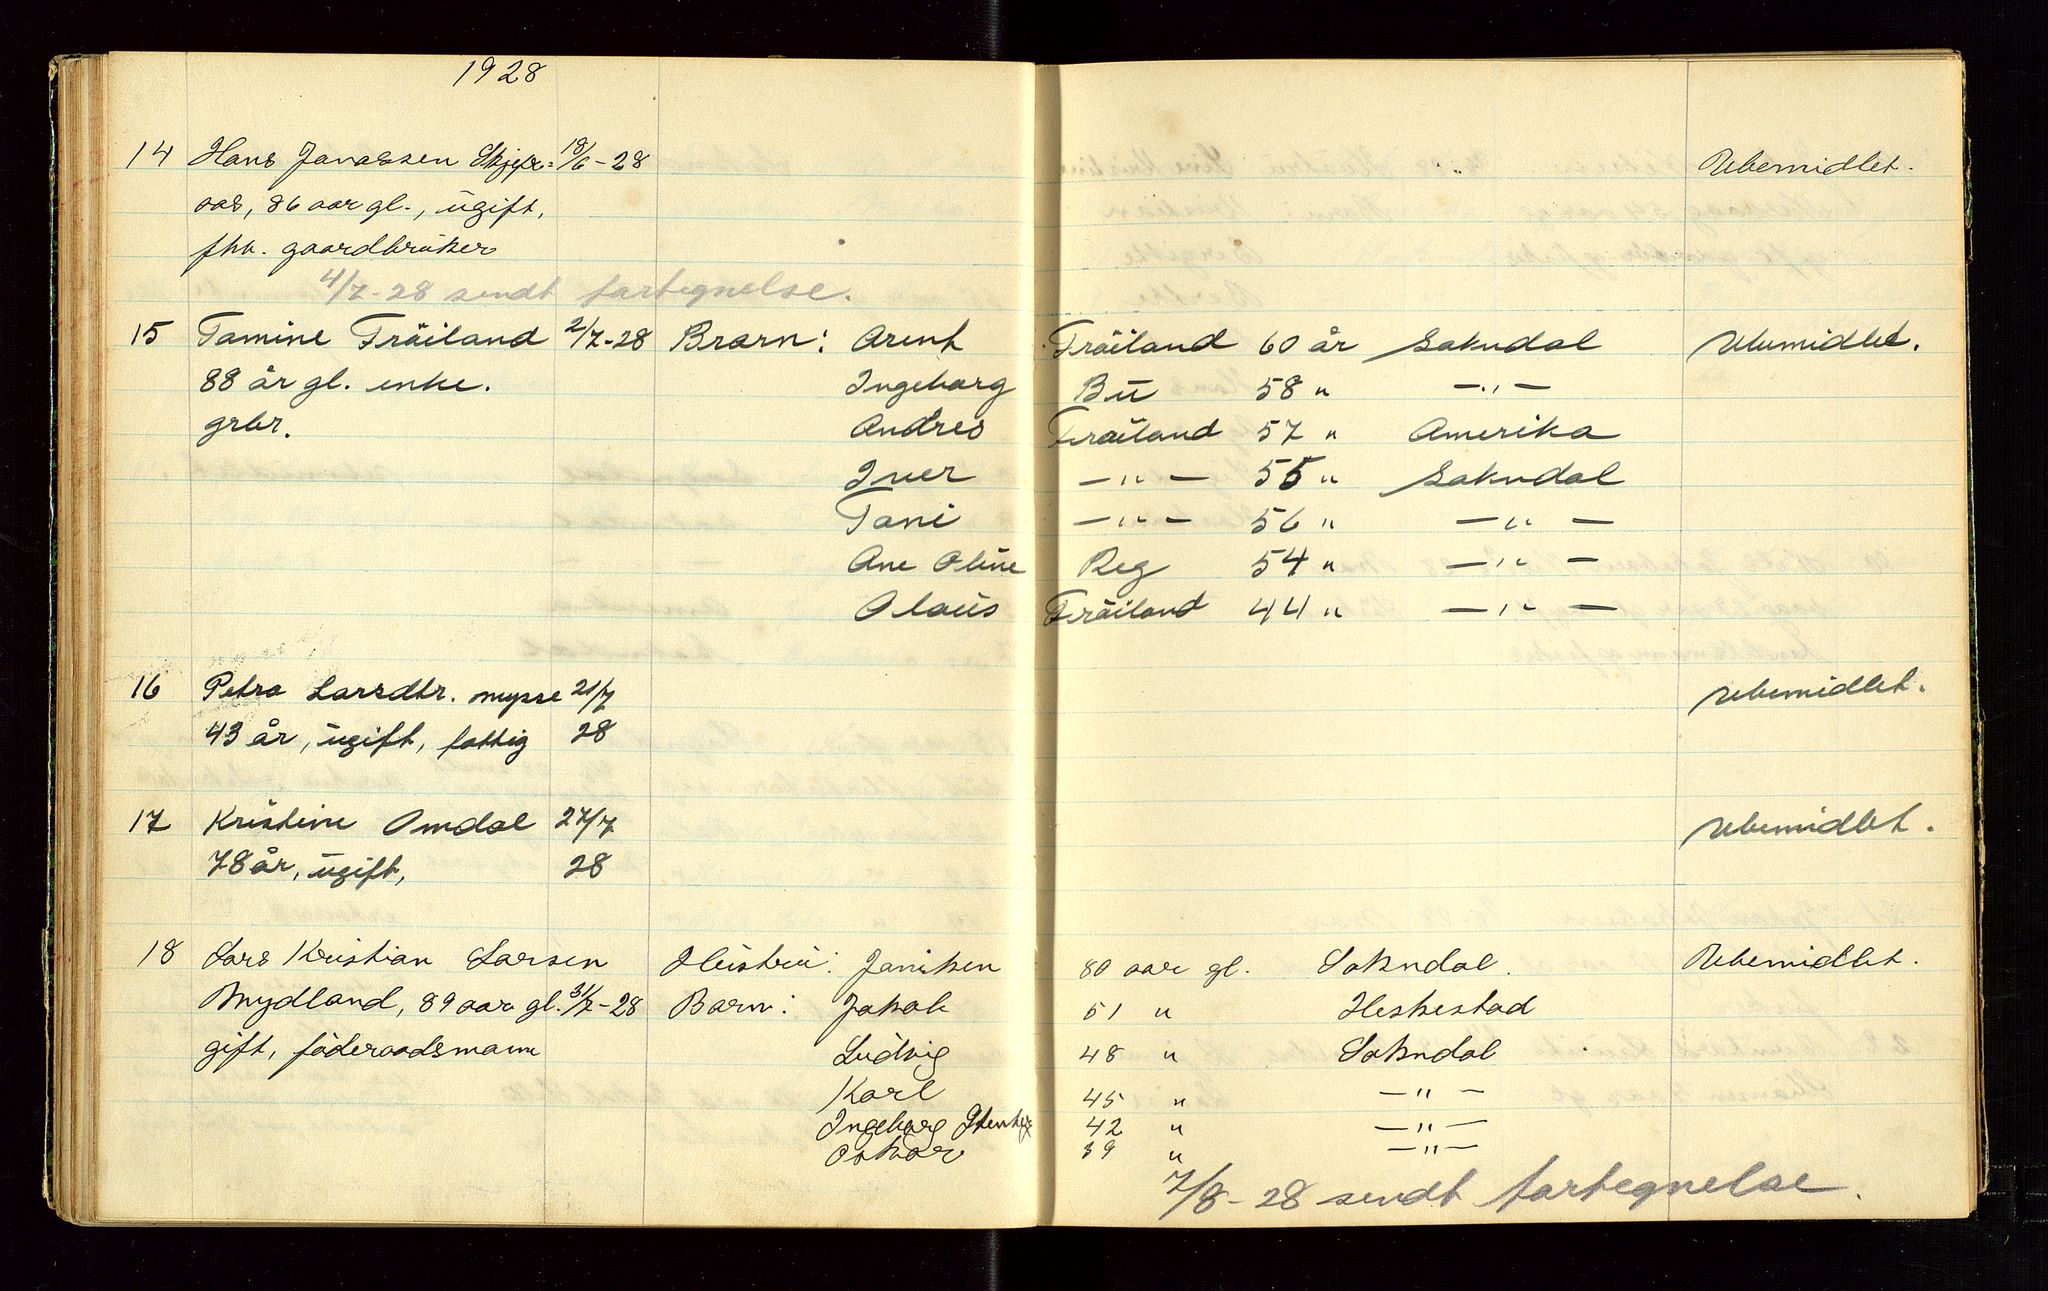 1928
14 Hans Jonassen Skjefr= 18/6-28 Ubemidlet.
aas, 86 aar gl., ugift,
fhv. gaardbruker
4/7-28 sendt fortegnelse.
15 Tomine Frøiland 2/7-28 Brarn: Arent Frøiland 60 år Sokndal Ubemidlet.
88 år gl. enke. Ingeborg Bu 58 " —"—
grbr. Andres Frøiland 57 " Amerika
Iver —"— 55 " Sokndal
Toni —"— 56 " —"—
Ane Oline Reg 54 " —"—
Olaus Frøiland 44 " —"—
16 Petra Larsdtr. mysse 21/7 Ubemidlet.
43 år, ugift, fattig 28
17 Kristine Omdal 27/7 Ubemidlet.
78 år, ugift, 28
18 Lars Kristian Larsen Hustru: Janiken 80 aar gl. Sokndal. Ubemidlet.
Mydland, 89 aar gl. 31/7-28 Barn: Jakob 51 " Heskestad
gift, föderaadsmann Ludvig 48 " Sokndal
Karl 45 " —"—
Ingeborg 42 " —"—
Oskar 39 " —"—
7/8-28 sendt fortegnelse.